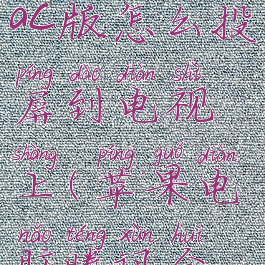 ac版怎么投
píng dào diàn shì
屏到电视
shàng píng guǒ diàn
上(苹果电
nǎo téng xùn huì